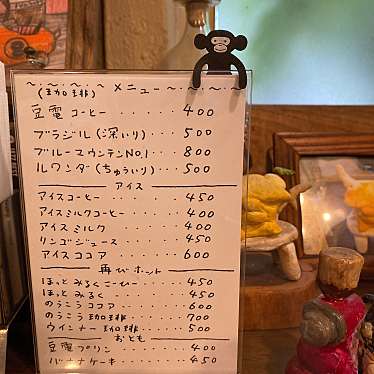 ～・～・～・～ メニュー ～・～・～・～
(珈琲)
豆電コーヒー・・・・・400
ブラジル(深いり)・・・500
ブルーマウンテンNO.1・・・800
ルワンダ(ちゅういり)・・・500
アイス
アイスコーヒー・・・・・・450
アイスミルクコーヒー・・・・400
アイスミルク・・・・・・400
リンゴジュース・・・・・・450
アイスココア・・・・・・600
再びホット
ほっとみるくこーひー・・・・450
ほっとみるく・・・・・・450
のうこうココア・・・・・600
のうこう珈琲・・・・・・700
ウインナー珈琲・・・・・500
おとも
豆電プリン・・・・・・400
バナナケーキ・・・・・・450